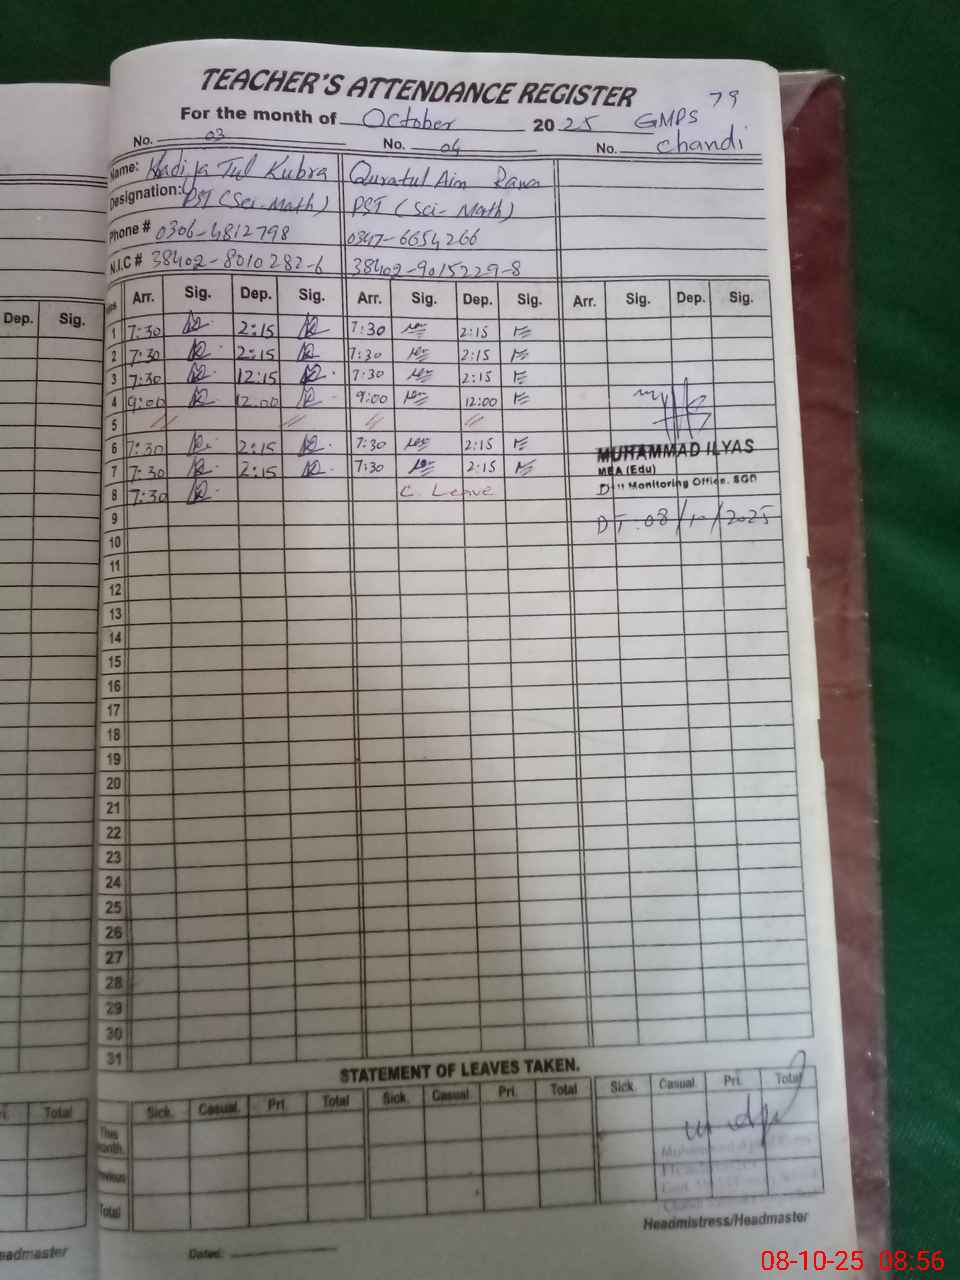 TEACHER'S ATTENDANCE REGISTER
79
For the month of October 2025 GMPS
No. 03 No. 04 No. chandi
Name: Khadija Tul Kubra Quratul Ain Rana
Designation: PST (Sci-Math) PST (Sci-Math)
Phone # 0306-4812798 0347-6654266
N.I.C # 38402-8010282-6 38402-9015229-8
Dep. Sig. Arr. Sig. Dep. Sig. Arr. Sig. Dep. Sig. Arr. Sig. Dep. Sig.
1 7:30 2:15 7:30 2:15
2 7:30 2:15 7:30 2:15
3 7:30 12:15 7:30 2:15
4 9:00 12:00 9:00 12:00
5 // // // //
6 7:30 2:15 7:30 2:15
MUHAMMAD ILYAS
MEA (Edu)
7 7:30 2:15 7:30 2:15
Monitoring Office. SGD
8 7:30 C. Leave
DT: 08/10/2025
9
10
11
12
13
14
15
16
17
18
19
20
21
22
23
24
25
26
27
28
29
30
31
STATEMENT OF LEAVES TAKEN.
Total Sick. Casual. Pri. Total Sick. Casual. Pri. Total Sick. Casual. Pri. Total
This month.
Previous
Total
Headmistress/Headmaster
Dated:
08-10-25 08:56